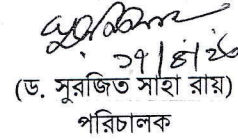 ১৭/৪/২৬
(ড. সুরজিত সাহা রায়)
পরিচালক